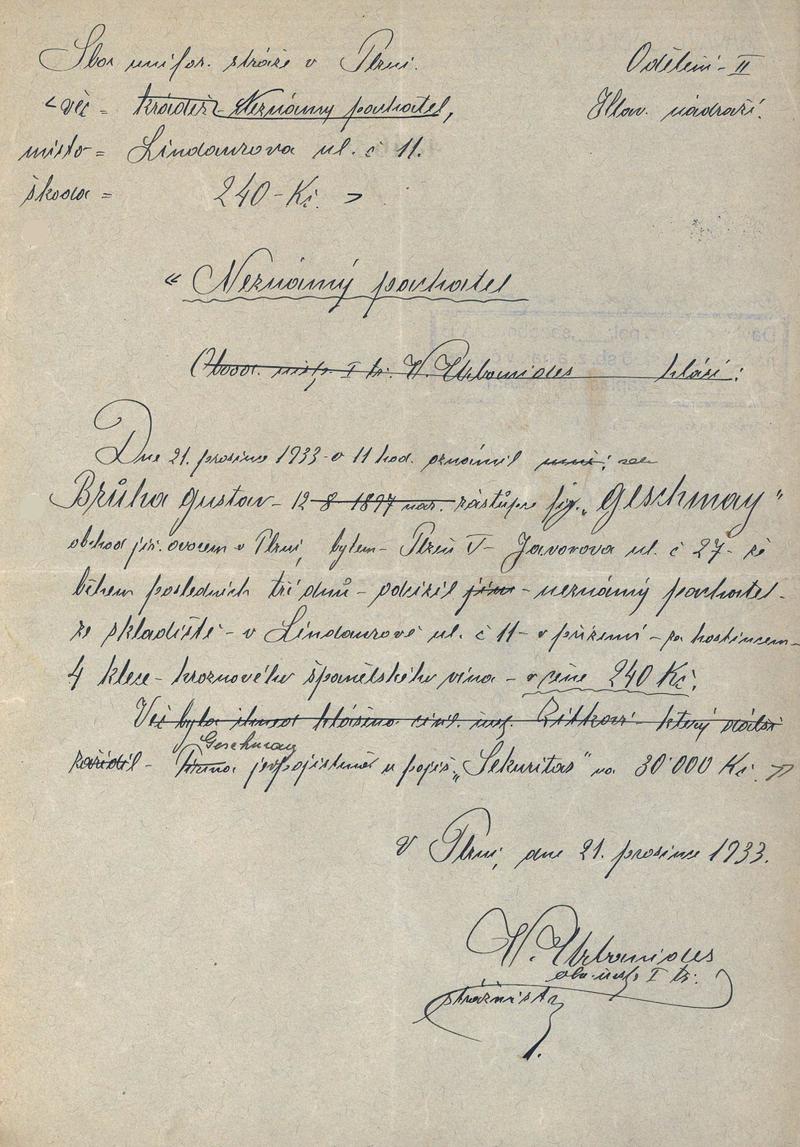 Sbor unifor. stráže v Plzni. Oddělení - II
"věc = krádež - Neznámý pachatel, Hlav. nádraží.
místo = Lindaurova ul. č 11.
škoda = 240 - Kč. "
" Neznámý pachatel
Obvod. insp. I tř. V. Urbanides hlásí:
Dne 21. prosince 1933 - v 11 hod. oznámil mně; zde
Brůha Gustav - 12 8 1897 nar. zástupce fir. „Geschmay"
obchod již. ovocem v Plzni, bytem - Plzeň V - Javorova ul. č 27 - že
během posledních tří dnů - odcizil jim - neznámý pachatel -
ze skladiště - v Lindaurově ul. č 11 - v přízemí - za hostincem -
4 - hroznového španělského vína - v ceně 240 Kč.
Věc byla ihned hlášena civil. insp. který další
zařídil - Firma Geschmay je pojištěna u pojiš. „Sekuritas" na 30'000 Kč. "
V Plzni, dne 21. prosince 1933.
V. Urbanides
obv. insp. I tř.
strážnist